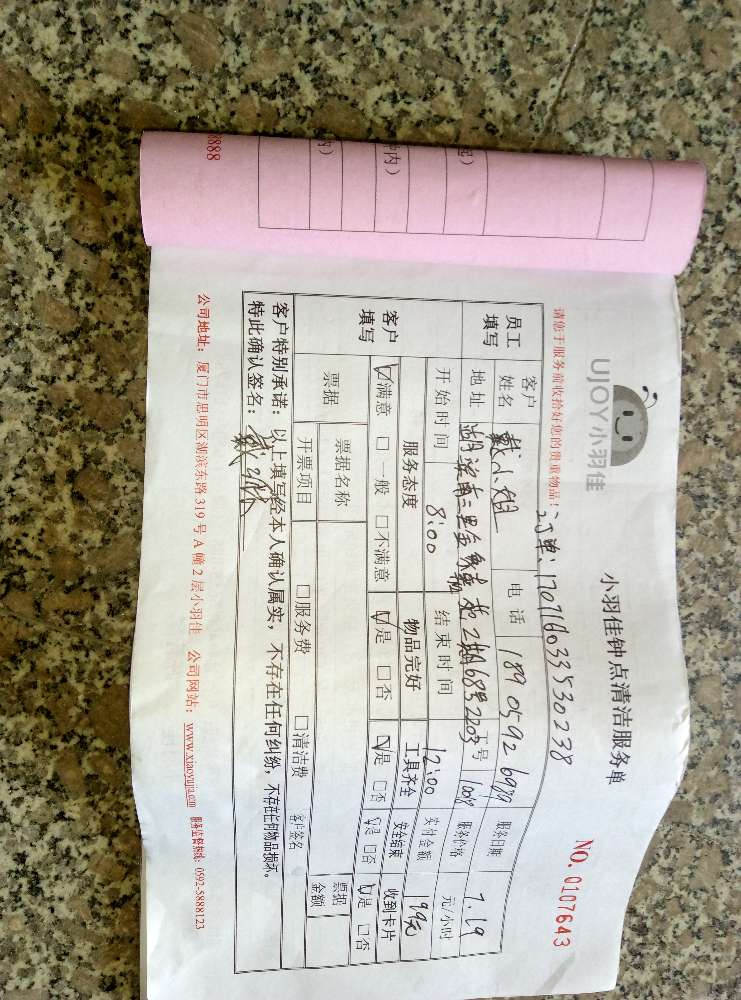 UJOY小羽佳
小羽佳钟点清洁服务单
NO. 0107643
请您于服务前收拾好您的贵重物品！
订单：170716033530238
员工填写
客户姓名 戴小姐 电话 189 0592 6989 服务日期 7.19
地址 工号 1008 服务价格 元/小时
开始时间 8:00 结束时间 12:00 实付金额 199元
客户填写
服务态度 物品完好 工具齐全 安全结束 收到卡片
☑满意 □一般 □不满意 ☑是 □否 ☑是 □否 ☑是 □否 ☑是 □否
票据 票据名称 票据金额
开票项目 □服务费 □清洁费 客户签名
客户特别承诺：以上填写经本人确认属实，不存在任何纠纷，不存在任何物品损坏。
特此确认签名：
公司地址：厦门市思明区湖滨东路319号A幢2层小羽佳 公司网站：www.xiaoyujia.com 服务监督热线：0592-5888123
8888
内）
钟内）
起）